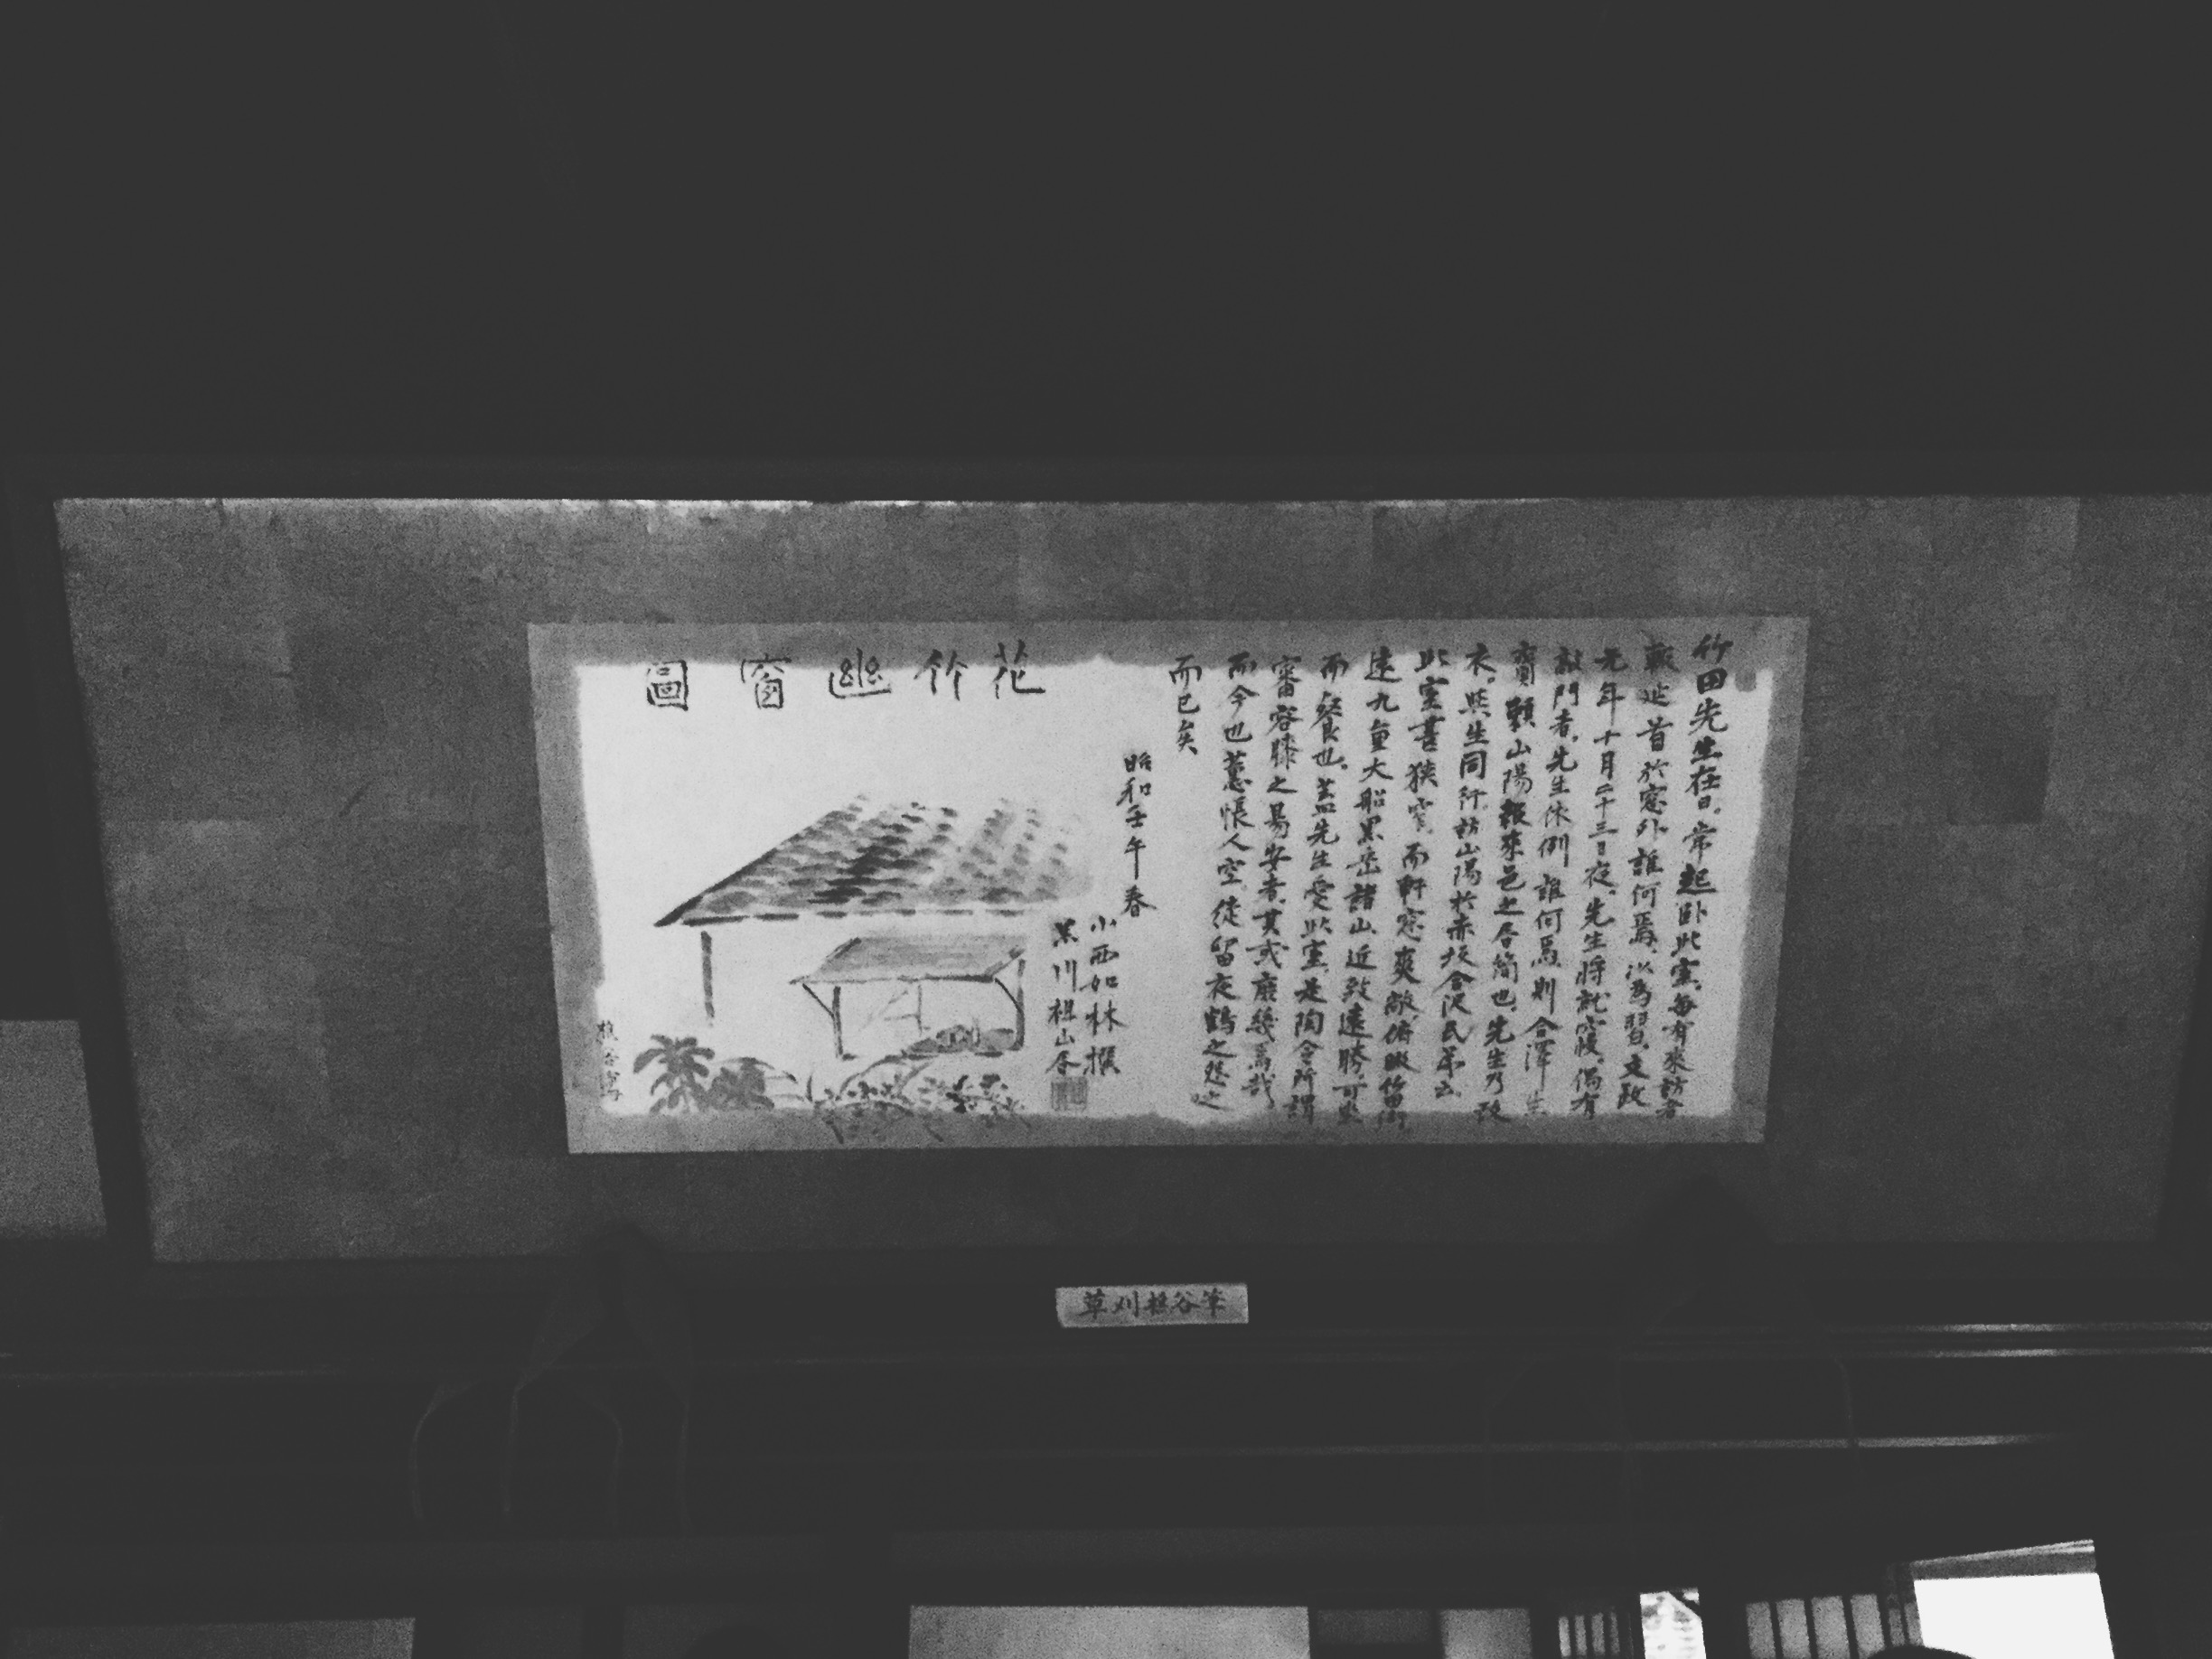 竹田先生在日。常起卧此室。每有來訪者
輙延首於窓外誰何焉。以為習。文政
元年十月二十三日夜。先生將就寢。偶有
敲門者。先生依例誰何焉。則合澤生
賚賴山陽報來邑之居簡也。先生乃
衣。與生同行。訪山陽於赤坂合沢氏弟云
此室甚狹窄。而軒窓爽敞。俯瞰竹田
遠九重大船黒岳諸山近致遠勝可
而餐也。蓋先生愛此室。是陶令所謂
審容膝之易安者。其或庶幾焉哉。
而今也蕙帳人空。徒留夜鶴之怨
而已矣
昭和壬午春
小西如林撰
黒川祖山書
花竹幽窗圖
樵谷寫
草刈樵谷筆